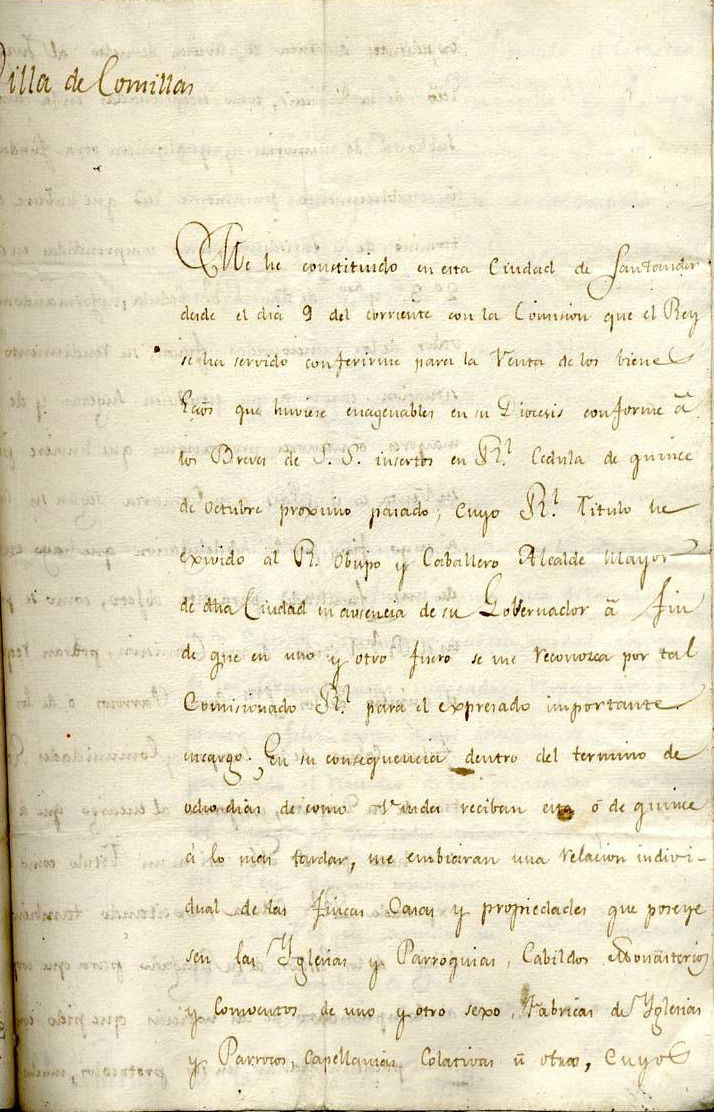 Villa de Comillas
Me he constituido en esta Ciudad de Santander
desde el dia 9 del corriente con la Comision que el Rey
se ha servido conferirme para la Venta de los biene s
Eccos que huviese enagenables en su Diocesis conforme â
los Breves de S. S. insertos en Rl. Cedula de quince
de Octubre proximo pasado, Cuyo Rl. Titulo he
exivido al R. Obispo y Caballero Alcalde Mayor
de dha Ciudad in ausencia de su Governador â fin
de que en uno y otro fuero se me reconozca por tal
Comisionado Rl. para el expresado importante
encargo. En su consequencia dentro del termino de
ocho dias de como Vmdes reciban esta ô de quince
â lo mas tardar, me embiaran una relacion indivi-
dual de las fincas Casas y propriedades que poseye
sen las Yglesias y Parroquias, Cabildos Monasterios
y Conventos de uno y otro sexo, Fabricas de Yglesias
y Parrocos, Capellanias Colativas û otras, Cuyos